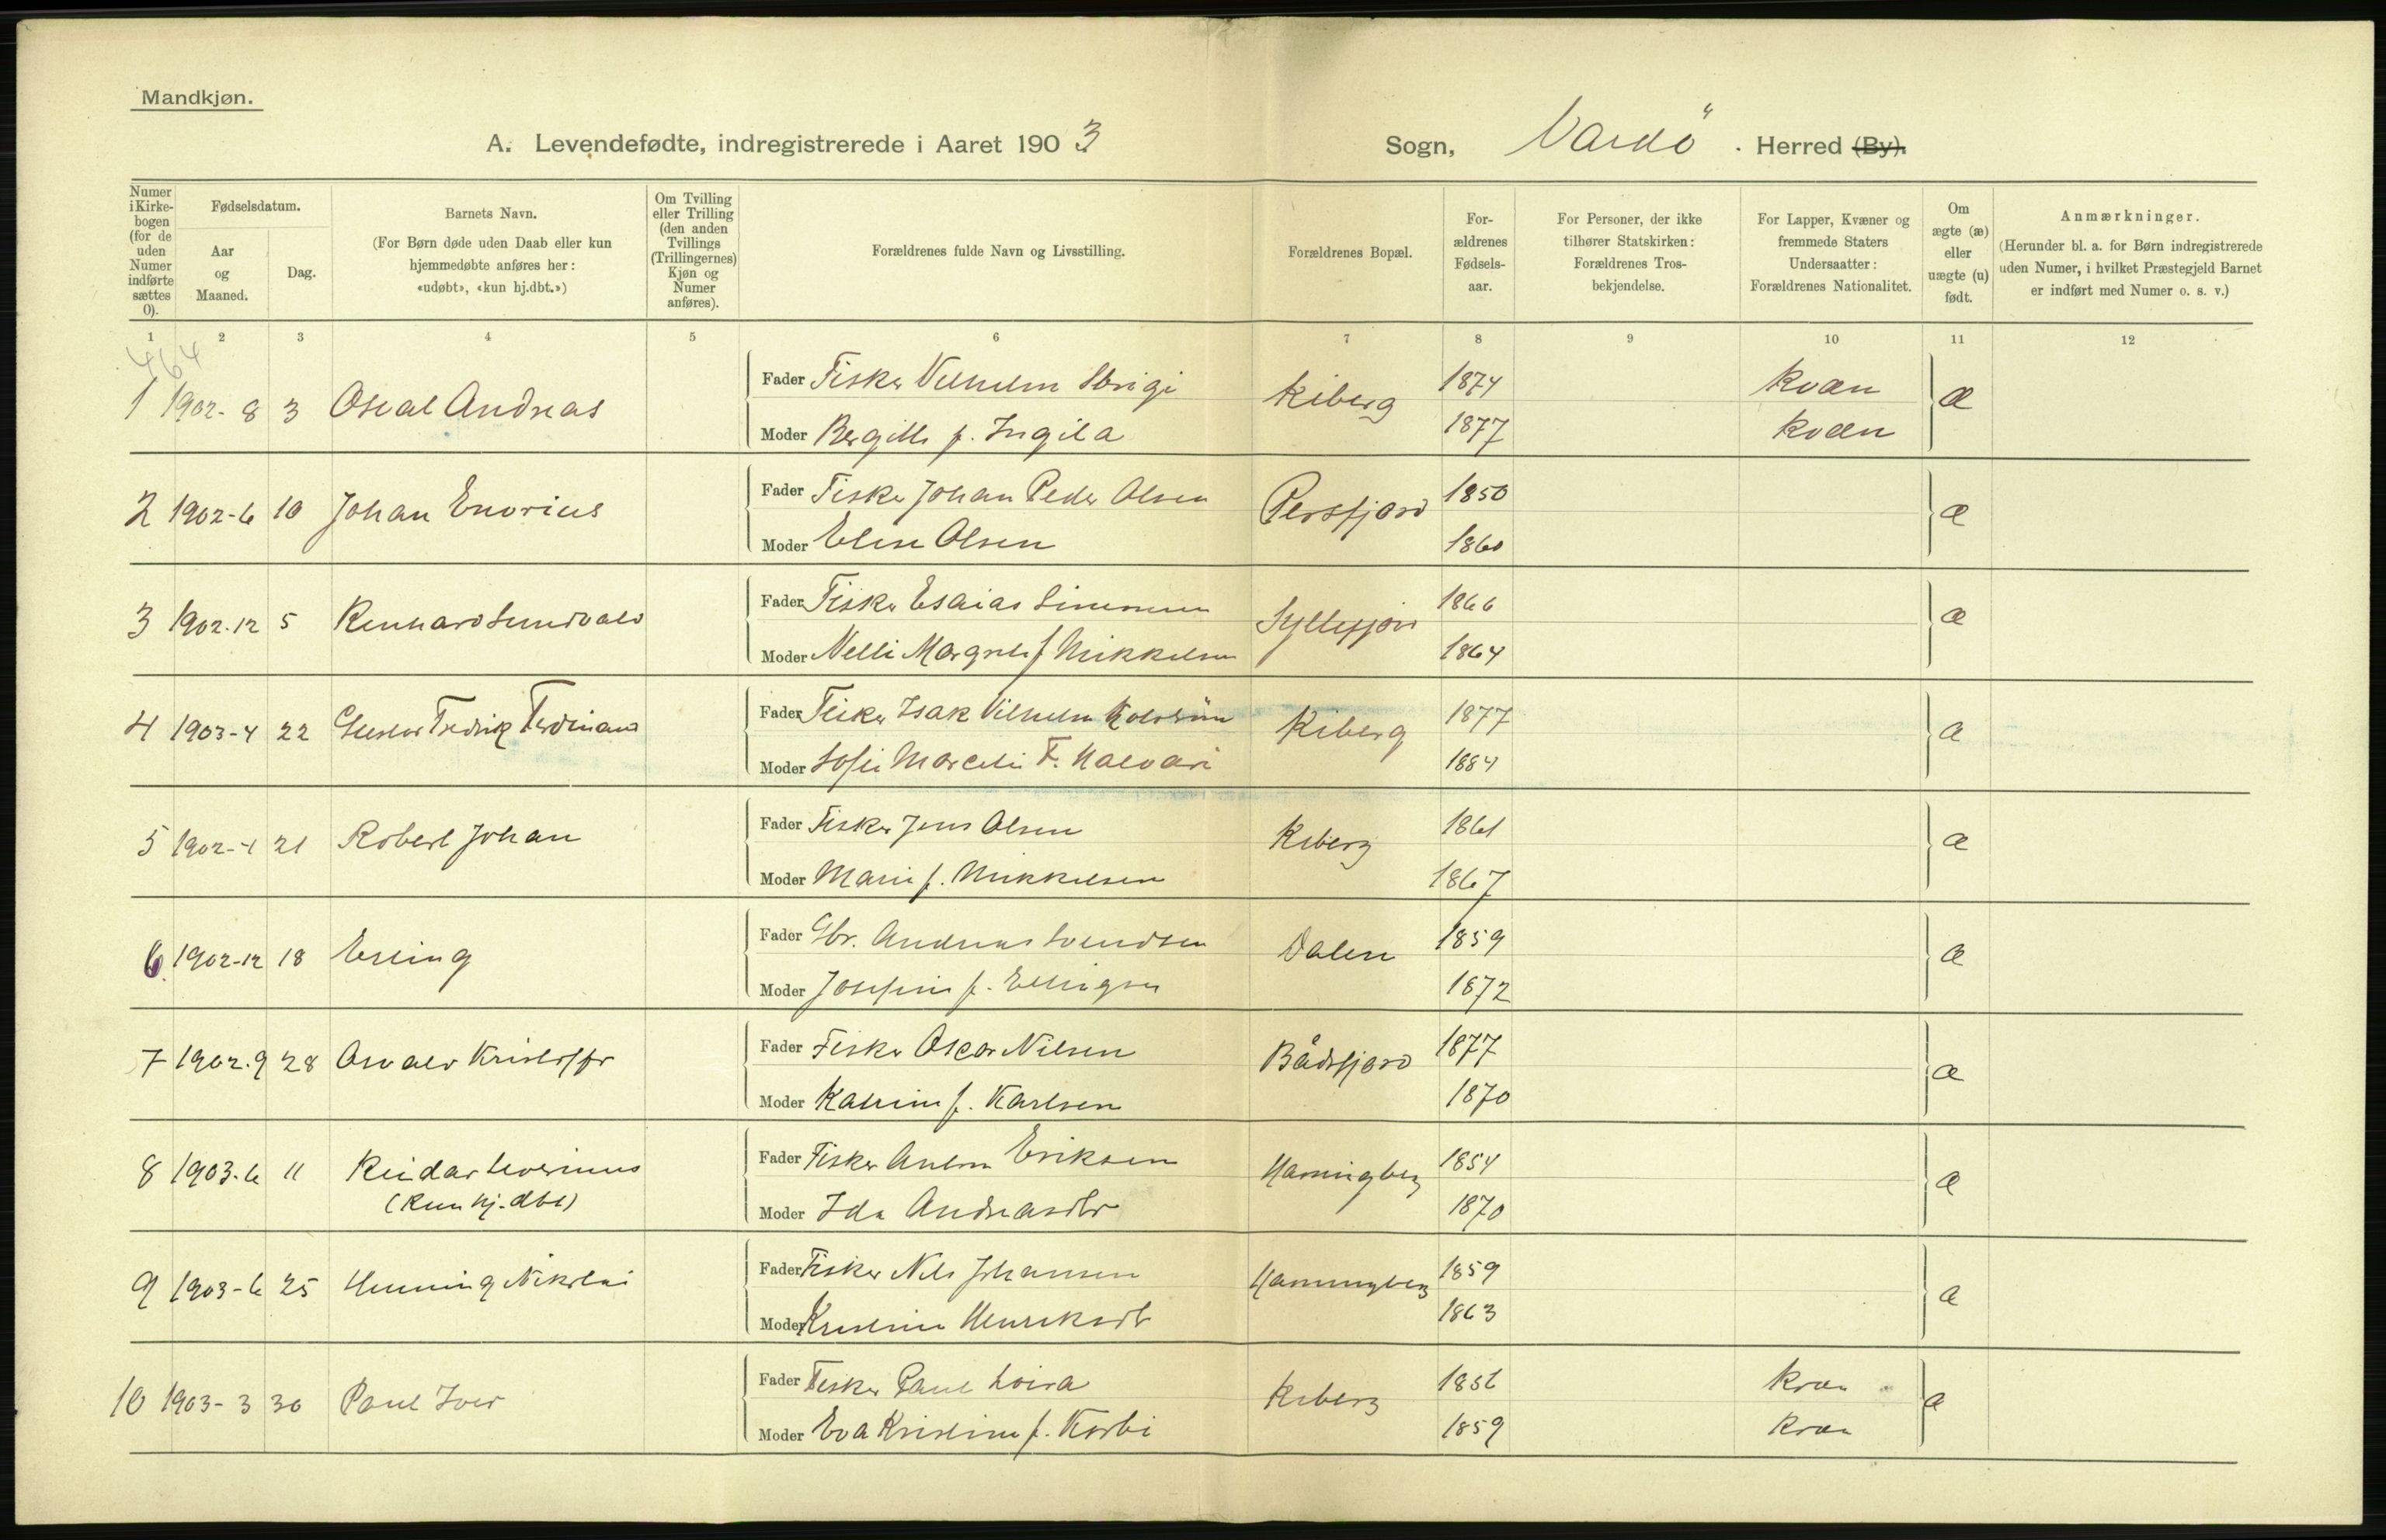 Mandkjøn.
A. Levendefødte, indregistrerede i Aaret 1903
Sogn, Vardö. Herred (By).
Numer i Kirke-bogen (for de uden Numer indførte sættes 0).
Fødselsdatum.
Aar og Maaned.
Dag.
Barnets Navn.
(For Børn døde uden Daab eller kun hjemmedøbte anføres her: «udøbt», «kun hj.dbt.»)
Om Tvilling eller Trilling (den anden Tvillings (Trillingernes) Kjøn og Numer anføres).
Forældrenes fulde Navn og Livsstilling.
Forældrenes Bopæl.
For-ældrenes Fødsels-aar.
For Personer, der ikke tilhører Statskirken: Forældrenes Tros-bekjendelse.
For Lapper, Kvæner og fremmede Staters Undersaatter: Forældrenes Nationalitet.
Om ægte (æ) eller uægte (u) født.
Anmærkninger.
(Herunder bl. a. for Børn indregistrerede uden Numer, i hvilket Præstegjeld Barnet er indført med Numer o. s. v.)
1 2 3 4 5 6 7 8 9 10 11 12
464
1 1902-8 3 Andreas Fader Fisker Vilhelm Kiberg 1874 Kvæn æ
Moder f. Ingila 1877 Kvæn
2 1902-6 10 Johan Enorius Fader Fisker Johan Peder Olsen Persfjord 1850 æ
Moder Elise Olsen 1860
3 1902.12 5 Fader Fisker Esaias Syltefjord 1866 æ
Moder Nelli Margrete f Mikkelsen 1864
4 1903-4 22 Fredrik Ferdinand Fader Fisker Isak Vilhelm Kiberg 1877 æ
Moder Sofie 1884
5 1902- 21 Robert Johan Fader Fisker Jens Olsen Kiberg 1861 æ
Moder Marie f. Mikkelsen 1867
6 1902-12 18 Erling Fader Gbr. Andreas Svendsen Dalen 1859 æ
Moder Josefine f. Ellingsen 1872
7 1902.9 28 Osvald Kristoffer Fader Fisker Oscar Nilsen Bådsfjord 1877 æ
Moder Katrine f. Karlsen 1870
8 1903.6 11 Reidar Severinus Fader Fisker Anton Eriksen Hamningberg 1854 æ
(Kun hj.dbt) Moder Ida Andreasdtr 1870
9 1903-6 25 Henning Nikolai Fader Fisker Nils Johansen Hamningberg 1859 æ
Moder Kristine Henriksdtr 1863
10 1903-3 30 Paul Iver Fader Fisker Paul Kiberg 1856 Kvæn æ
Moder Eva Kristine f. Korbi 1859 Kvæn